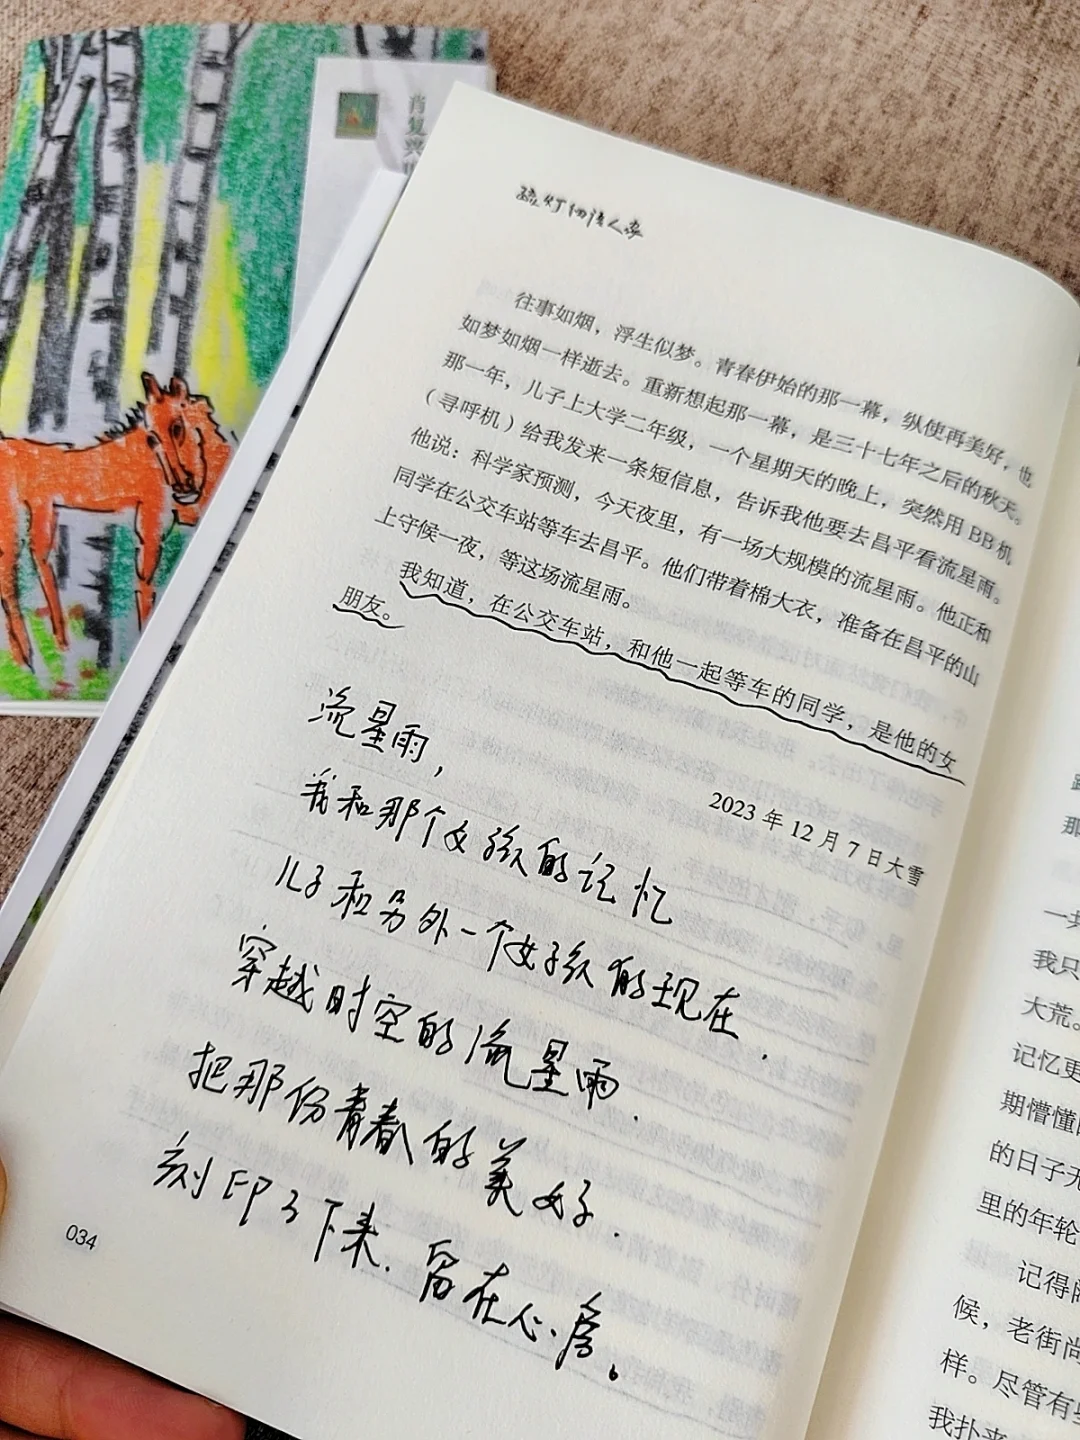 肖复兴
疏灯细语人家
往事如烟，浮生似梦。青春伊始的那一幕，纵使再美好，也
如梦如烟一样逝去。重新想起那一幕，是三十七年之后的秋天。
那一年，儿子上大学二年级，一个星期天的晚上，突然用 BB 机
（寻呼机）给我发来一条短信息，告诉我他要去昌平看流星雨。
他说：科学家预测，今天夜里，有一场大规模的流星雨。他正和
同学在公交车站等车去昌平。他们带着棉大衣，准备在昌平的山
上守候一夜，等这场流星雨。
我知道，在公交车站，和他一起等车的同学，是他的女
朋友。
2023 年 12 月 7 日大雪
流星雨，
我和那个女孩的记忆
儿子和另外一个女孩的现在．
穿越时空的流星雨．
把那份青春的美好．
刻印了下来．留在心房。
034
那
一共
我只
大荒。
记忆更
期懵懂
的日子无
里的年轮
记得
候，老街尚
样。尽管有些
我扑来